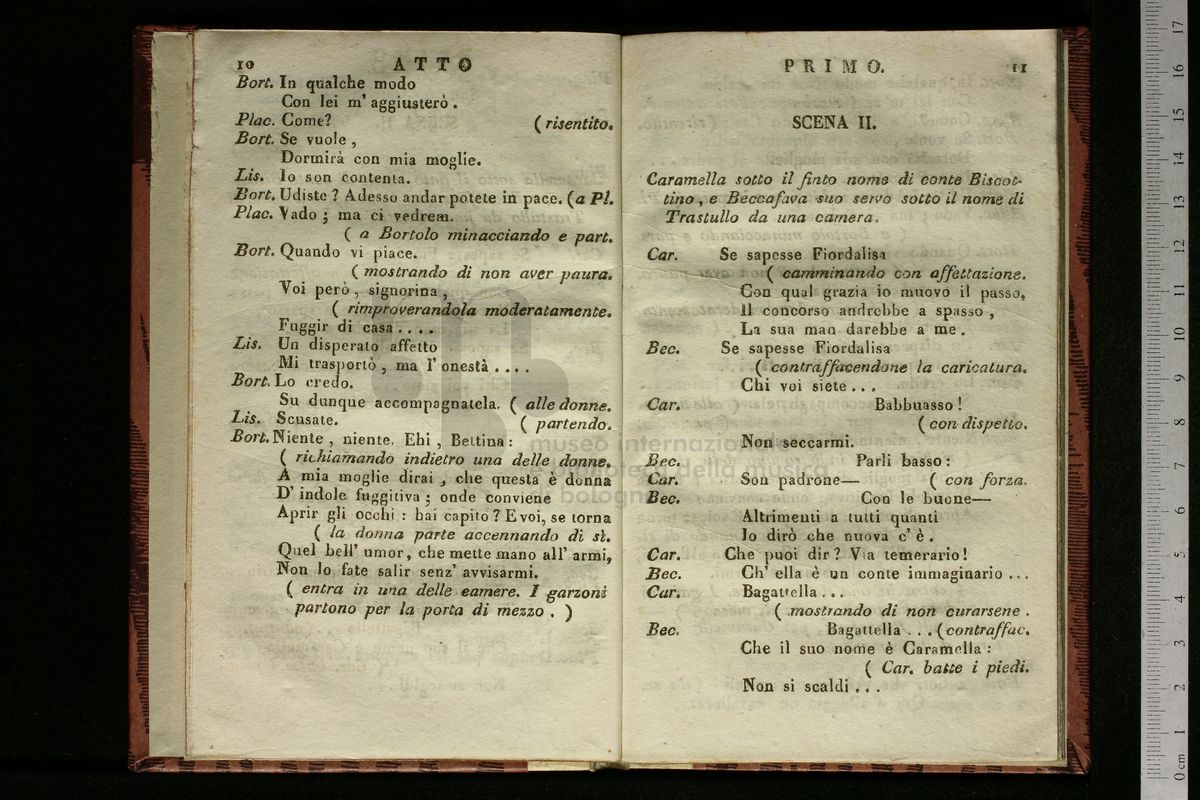 10 ATTO
Bort. In qualche modo
Con lei m' aggiusterò .
Plac. Come? ( risentito.
Bort. Se vuole ,
Dormirà con mia moglie.
Lis. Io son contenta.
Bort. Udiste ? Adesso andar potete in pace. (a Pl.
Plac. Vado ; ma ci vedrem.
( a Bortolo minacciando e part.
Bort. Quando vi piace.
( mostrando di non aver paura.
Voi però , signorina ,
( rimproverandola moderatamente.
Fuggir di casa . . . .
Lis. Un disperato affetto
Mi trasportò , ma l' onestà . . . .
Bort. Lo credo.
Su dunque accompagnatela. ( alle donne.
Lis. Scusate. ( partendo.
Bort. Niente , niente. Ehi , Bettina :
( richiamando indietro una delle donne.
A mia moglie dirai , che questa è donna
D' indole fuggitiva ; onde conviene
Aprir gli occhi : hai capito ? E voi, se torna
( la donna parte accennando di sì.
Quel bell' umor, che mette mano all' armi,
Non lo fate salir senz' avvisarmi.
( entra in una delle camere. I garzoni
partono per la porta di mezzo . )
PRIMO. 11
SCENA II.
Caramella sotto il finto nome di conte Biscot-
tino , e Beccafava suo servo sotto il nome di
Trastullo da una camera.
Car. Se sapesse Fiordalisa
( camminando con affettazione.
Con qual grazia io muovo il passo,
Il concorso andrebbe a spasso ,
La sua man darebbe a me .
Bec. Se sapesse Fiordalisa
( contraffacendone la caricatura.
Chi voi siete . . .
Car. Babbuasso !
( con dispetto.
Non seccarmi.
Bec. Parli basso :
Car. Son padrone— ( con forza.
Bec. Con le buone—
Altrimenti a tutti quanti
Io dirò che nuova c' è .
Car. Che puoi dir ? Via temerario !
Bec. Ch' ella è un conte immaginario . . .
Car. Bagattella . . .
( mostrando di non curarsene .
Bec. Bagattella . . . ( contraffac.
Che il suo nome è Caramella :
( Car. batte i piedi.
Non si scaldi . . .
museo internazionale
e biblioteca della musica
bologna
0 cm 1 2 3 4 5 6 7 8 9 10 11 12 13 14 15 16 17